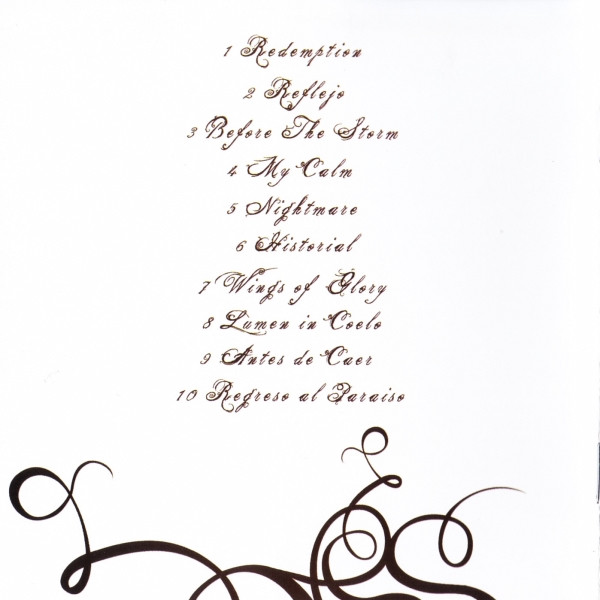 1 Redemption
2 Reflejo
3 Before The Storm
4 My Calm
5 Nightmare
6 Historial
7 Wings of Glory
8 Lumen in Coelo
9 Antes de Caer
10 Regreso al Paraiso